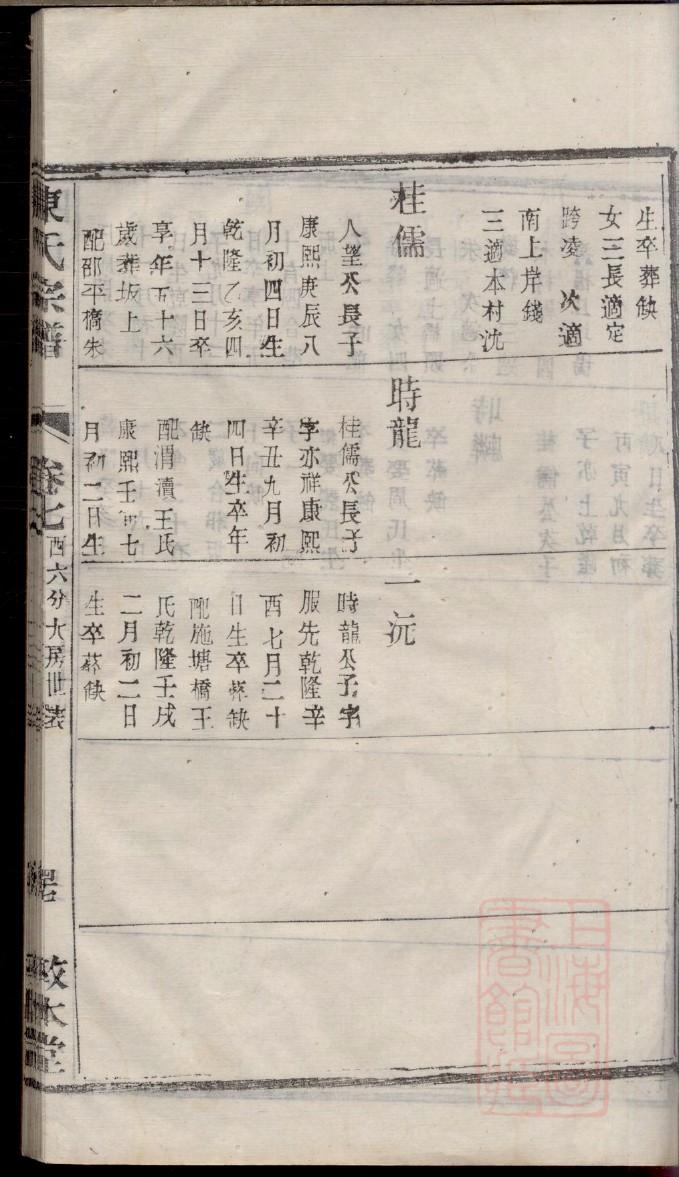 生卒葬缺
女三長適定
跨凌　次適
南上岸錢
三適本村沈
桂儒
人望公長子
康熙庚辰八
月初四日生
乾隆乙亥四
月十三日卒
享年五十六
歲葬坂上
配邵平橋朱
時龍
桂儒公長子
字亦祥康熙
辛丑九月初
四日生卒年
缺
配渭瀆王氏
康熙壬寅七
月初二日生
一沅
時龍公子字
服先乾隆辛
酉七月二十
日生卒葬缺
配施塘橋王
氏乾隆壬戌
二月初二日
生卒葬缺
陳氏宗譜
卷七
西六分大房世表
敦本堂
上海圖
書館藏